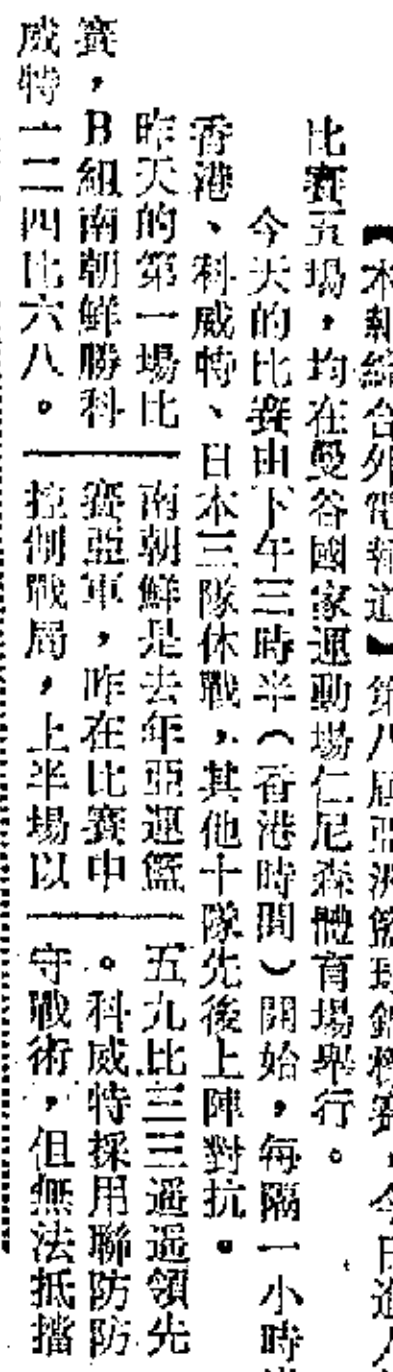 【本報綜合外電報道】第八屆亞洲籃球錦標賽，今日進入
比賽五場，均在曼谷國家運動場仁尼森體育場舉行。
今天的比賽由下午三時半（香港時間）開始，每隔一小時
香港、科威特、日本三隊休戰，其他十隊先後上陣對抗。
昨天的第一場比
賽，B組南朝鮮勝科
威特一二四比六八。
南朝鮮是去年亞運籃
賽亞軍，昨在比賽中
控制戰局，上半場以
五九比三三遥遥領先
。科威特採用聯防防
守戰術，但無法抵擋